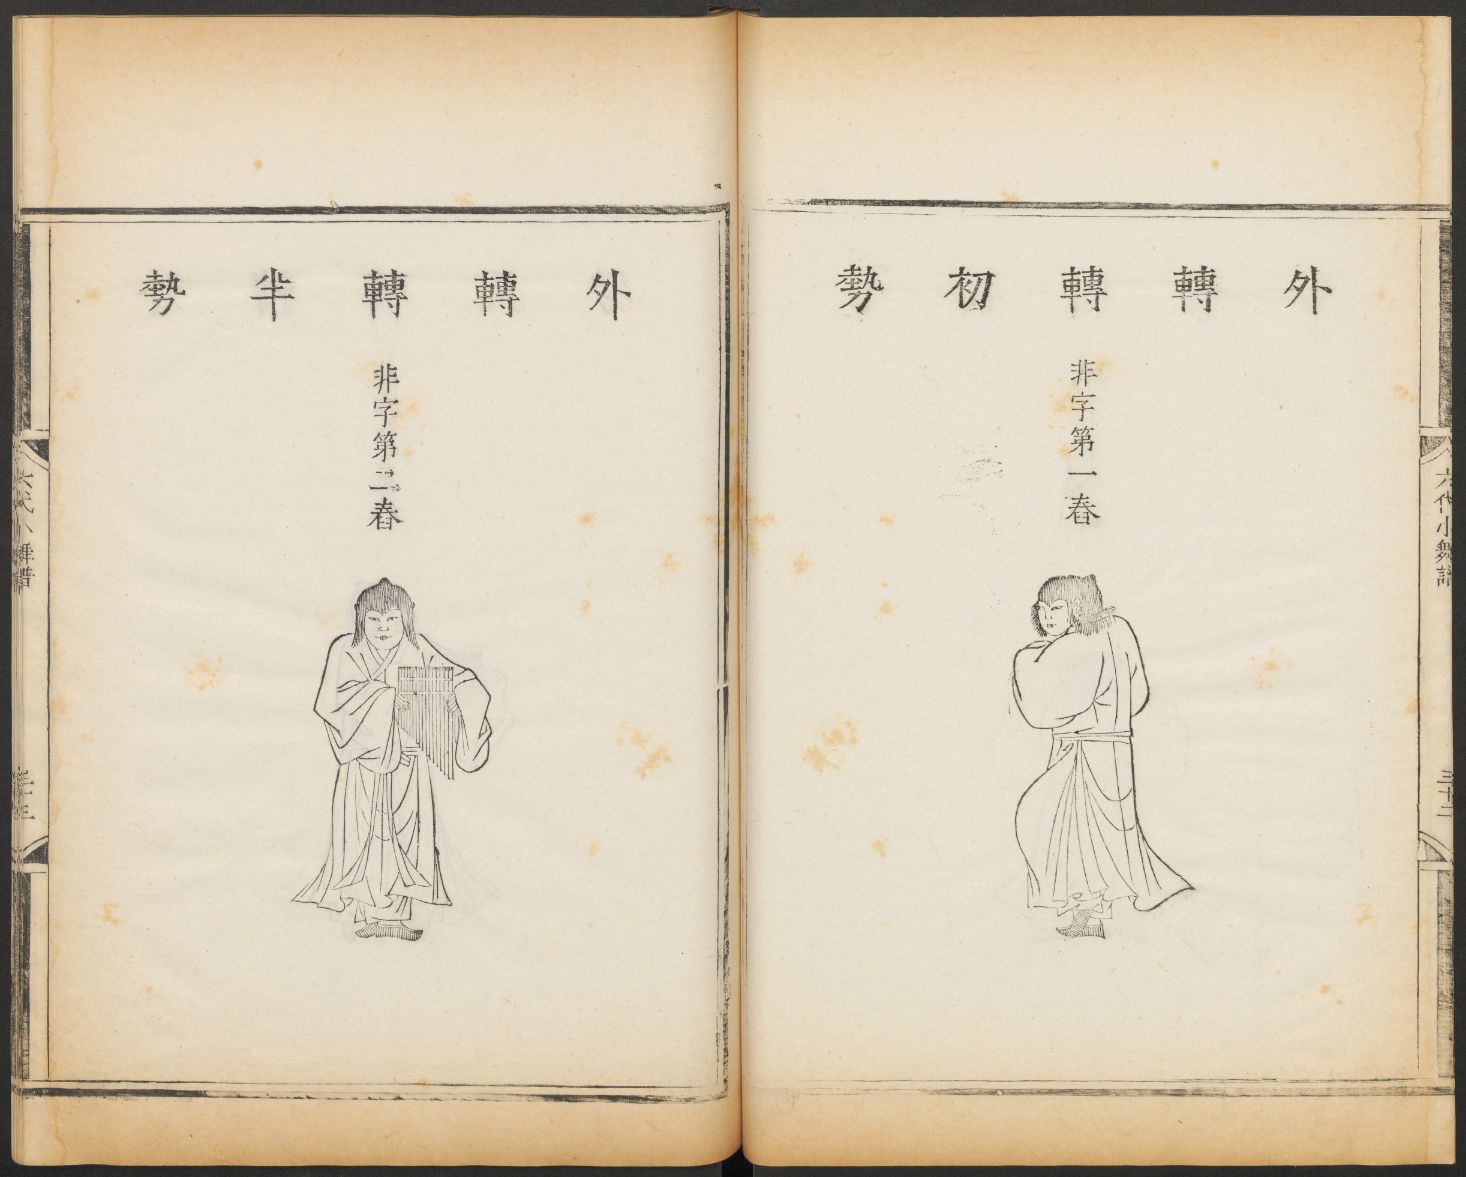 外轉轉初勢
非字第一舂
六代小舞譜
三十二
外轉轉半勢
非字第二舂
小舞譜